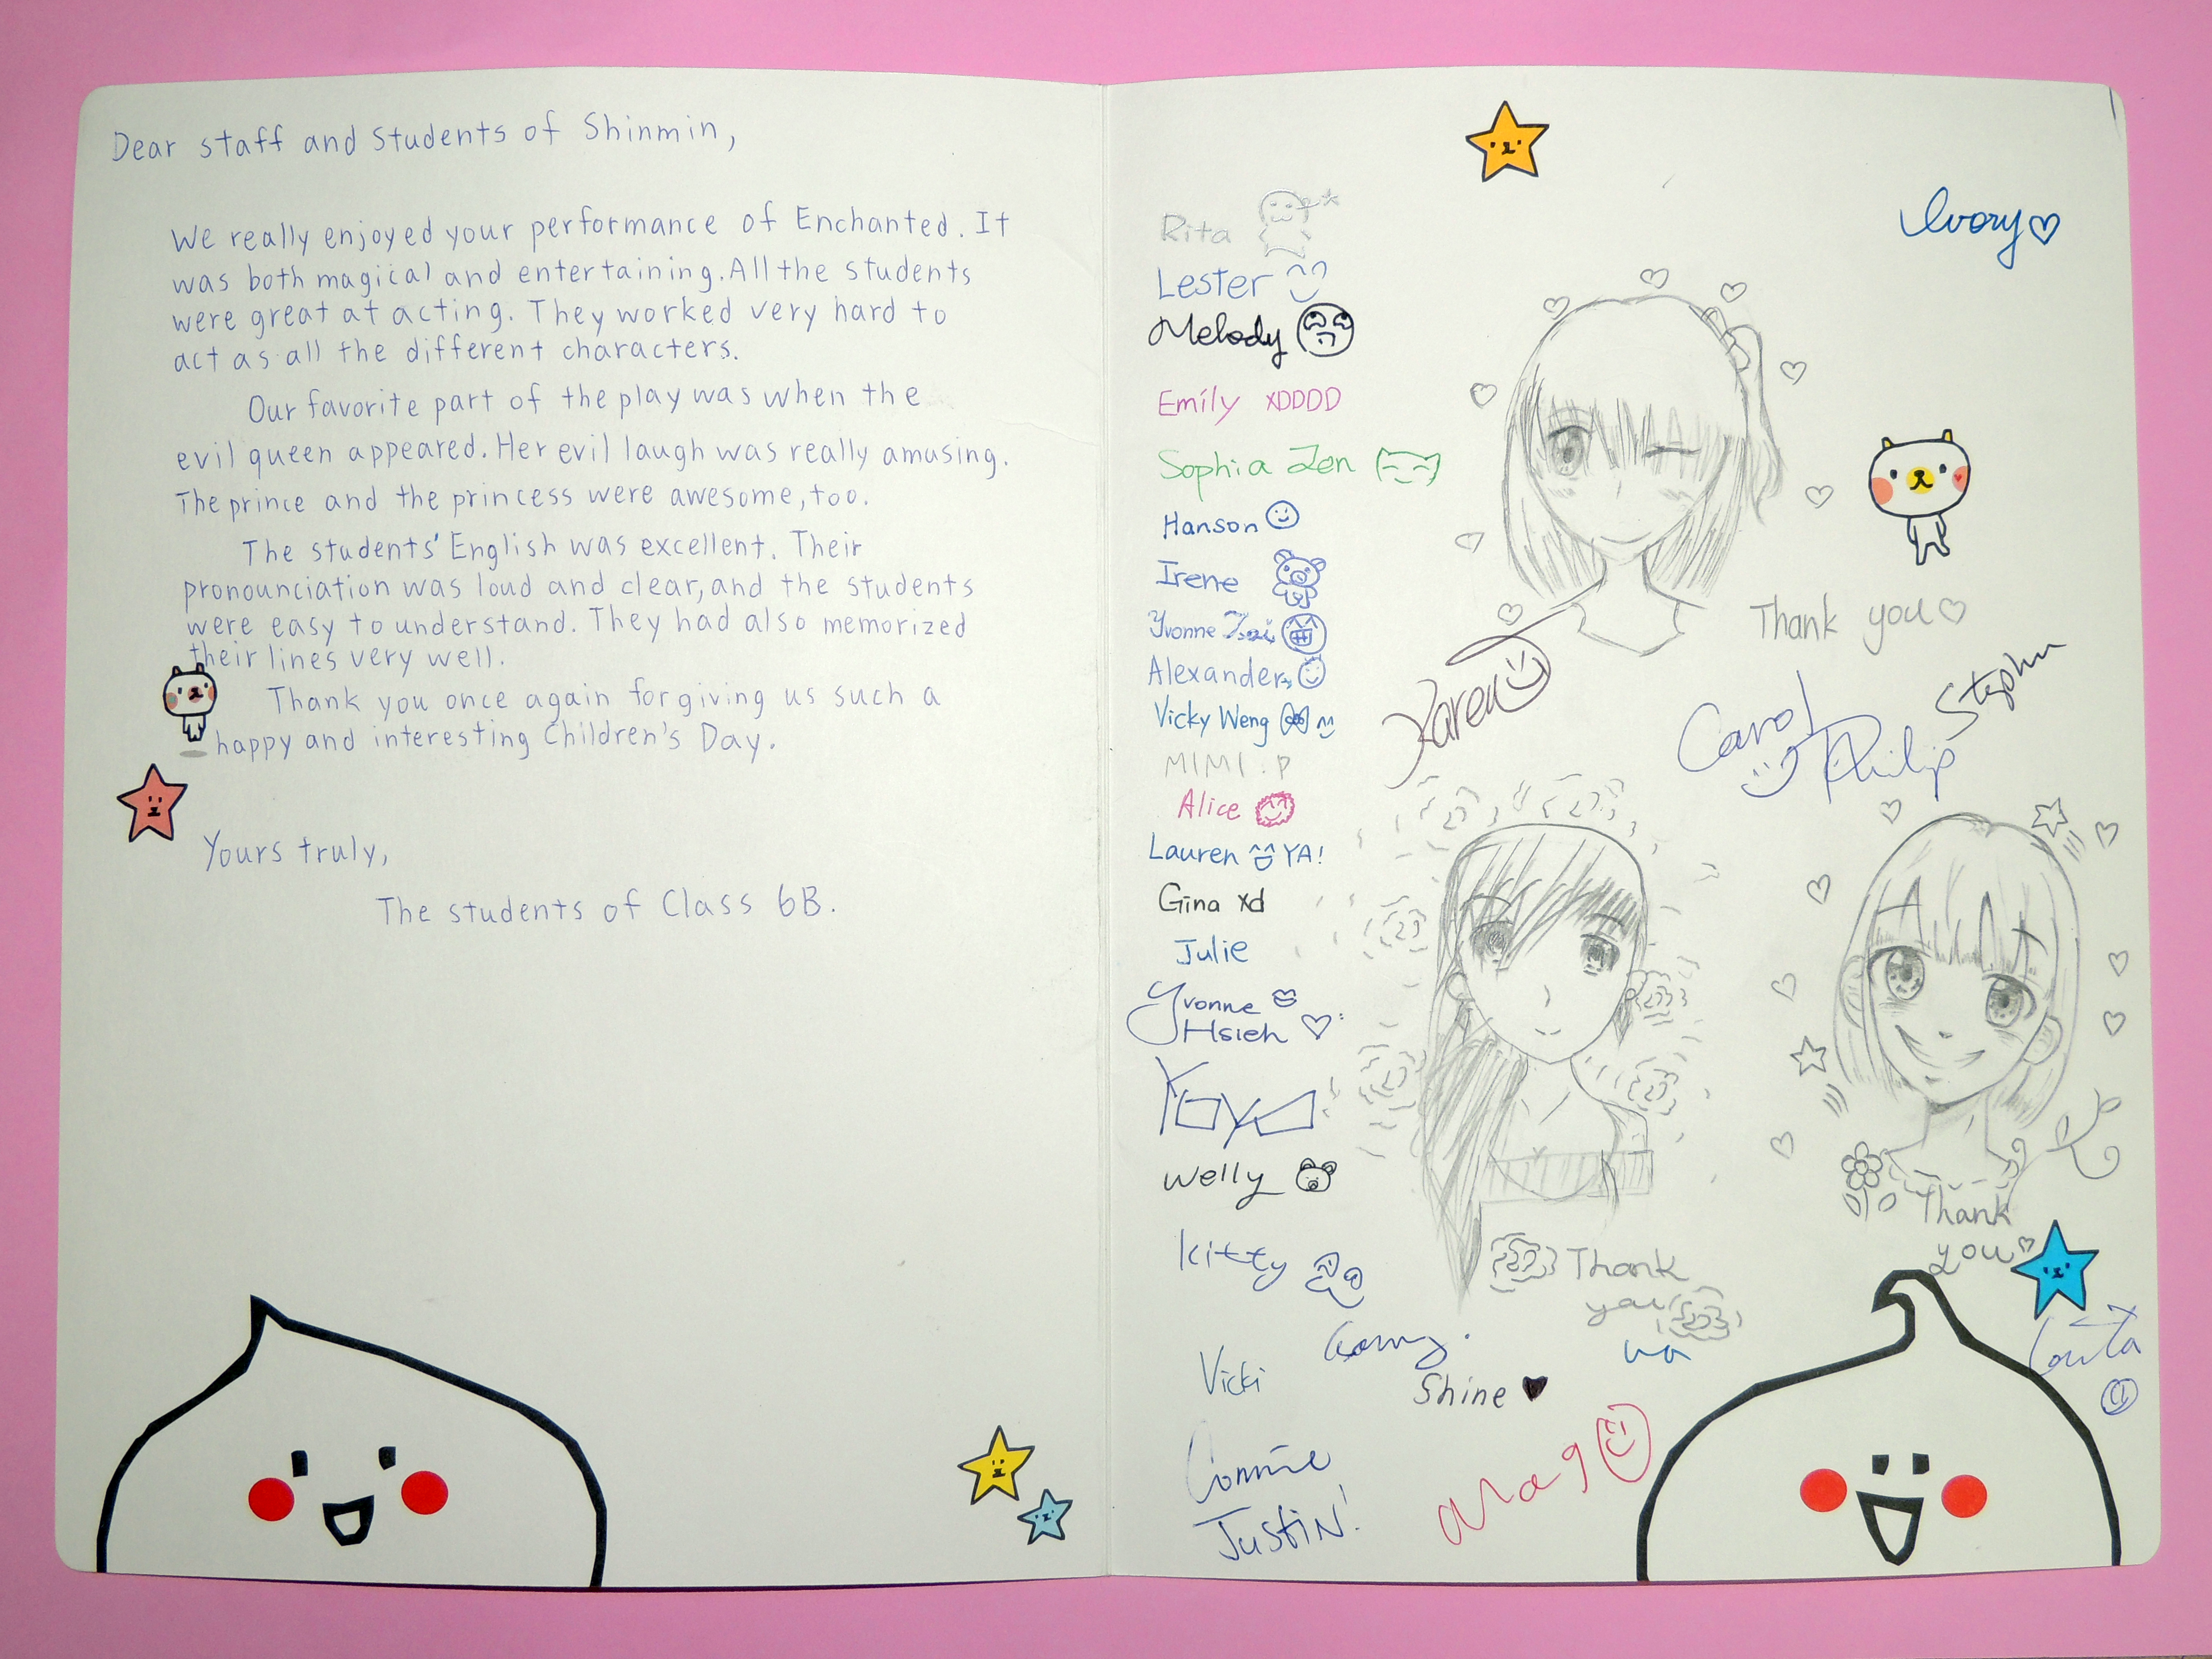 Dear staff and students of Shinmin,
We really enjoyed your performance of Enchanted. It
was both magical and entertaining. All the students
were great at acting. They worked very hard to
act as all the different characters.
Our favorite part of the play was when the
evil queen appeared. Her evil laugh was really amusing.
The prince and the princess were awesome, too.
The students' English was excellent. Their
pronounciation was loud and clear, and the students
were easy to understand. They had also memorized
their lines very well.
Thank you once again for giving us such a
happy and interesting Children's Day.
Yours truly,
The students of Class 6B.
Ivory
Rita
Lester
Melody
Emily XDDDD
Sophia Zen
Hanson
Irene
Yvonne Tsai
Alexander
Vicky Weng
MIMI.P
Alice
Lauren YA!
Gina xd
Julie
Yvonne
Hsieh
Yoyo
Welly
Kitty
Vicki
Connie
Justin!
Thank you
Karen
Carol
Philip
Stephn
Thank
you
Thank
you
Shine